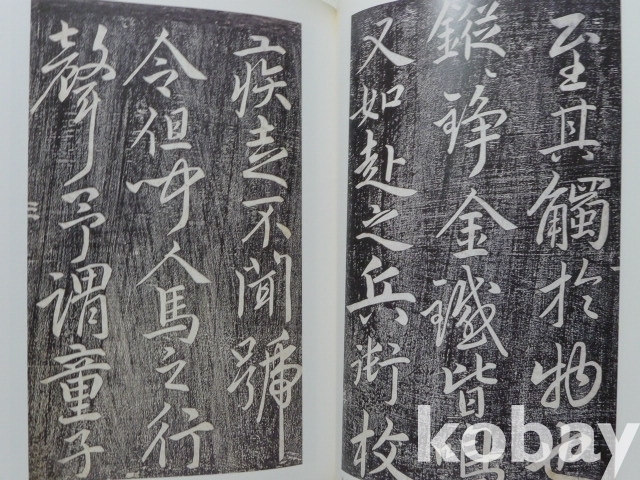 至其觸於物也
鏦〻錚金鐵皆鳴
又如赴之兵銜枚
疾走不聞號
令但人馬之行
聲予謂童子
kobay